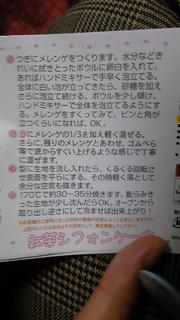 つぎにメレンゲをつくります。水分などき
れいに拭きとったボウルに卵白を入れて、
あればハンドミキサーで手早く泡立てる。
全体に白い泡が立ってきたら、砂糖を加え
さらに泡立て続ける。ボウルを少し傾け、
ハンドミキサーで全体を泡立てるようにす
る。メレンゲをすくってみて、ピンと角が
立つくらいになれば、OK。
にメレンゲの1/3を加え軽く混ぜる。
さらに、残りのメレンゲとあわせ、ゴムべら
等で底からすくい上げるような感じで丁寧
に混ぜます。
⑦ 型に生地を流し入れたら、くるくる回転さ
せ表面を平らにする。その時軽く落として
余分な空気も抜きます。
⑧ 170℃で約30~35分焼きます。膨らみき
った生地が少し沈んだらOK。オーブンから
取り出し逆さにして冷ませば出来上がり!
紅茶シフォンケー